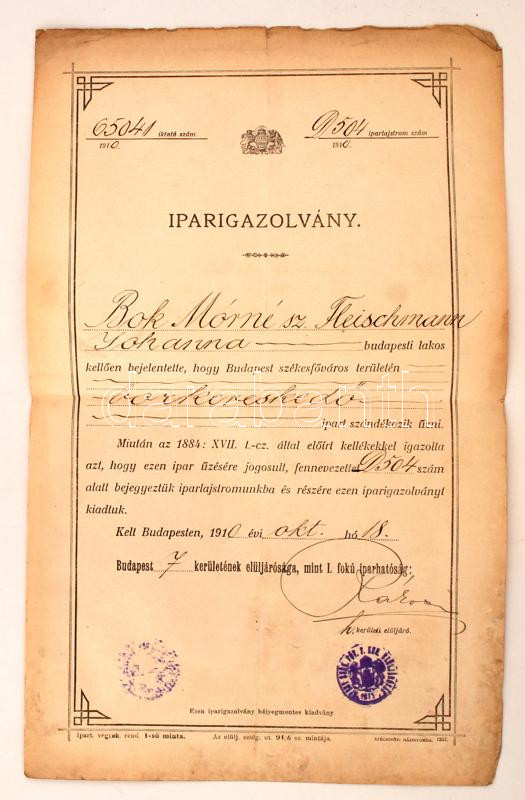 65041 iktató szám. D504 iparlajstrom szám
1910. 1910.
IPARIGAZOLVÁNY.
Bok Mórné sz. Fleischmann
Johanna budapesti lakos
kellően bejelentette, hogy Budapest székesfőváros területén
darabanth
ipart szándékozik űzni.
Miután az 1884: XVII. t.-cz. által előirt kellékekkel igazolta
azt, hogy ezen ipar űzésére jogosult, fennevezettet D504 szám
alatt bejegyeztük iparlajstromunkba és részére ezen iparigazolványt
kiadtuk.
Kelt Budapesten, 1910 évi okt. hó 18.
Budapest 7 kerületének elüljárósága, mint I. fokú iparhatóság:
h. kerületi elüljáró.
Ezen iparigazolvány bélyegmentes kiadvány.
Ipart. végreh. rend. 1-ső minta. Az elülj. szolg. ut. sz. mintája. SZÉKESFŐV. HÁZINYOMDA. 1907.